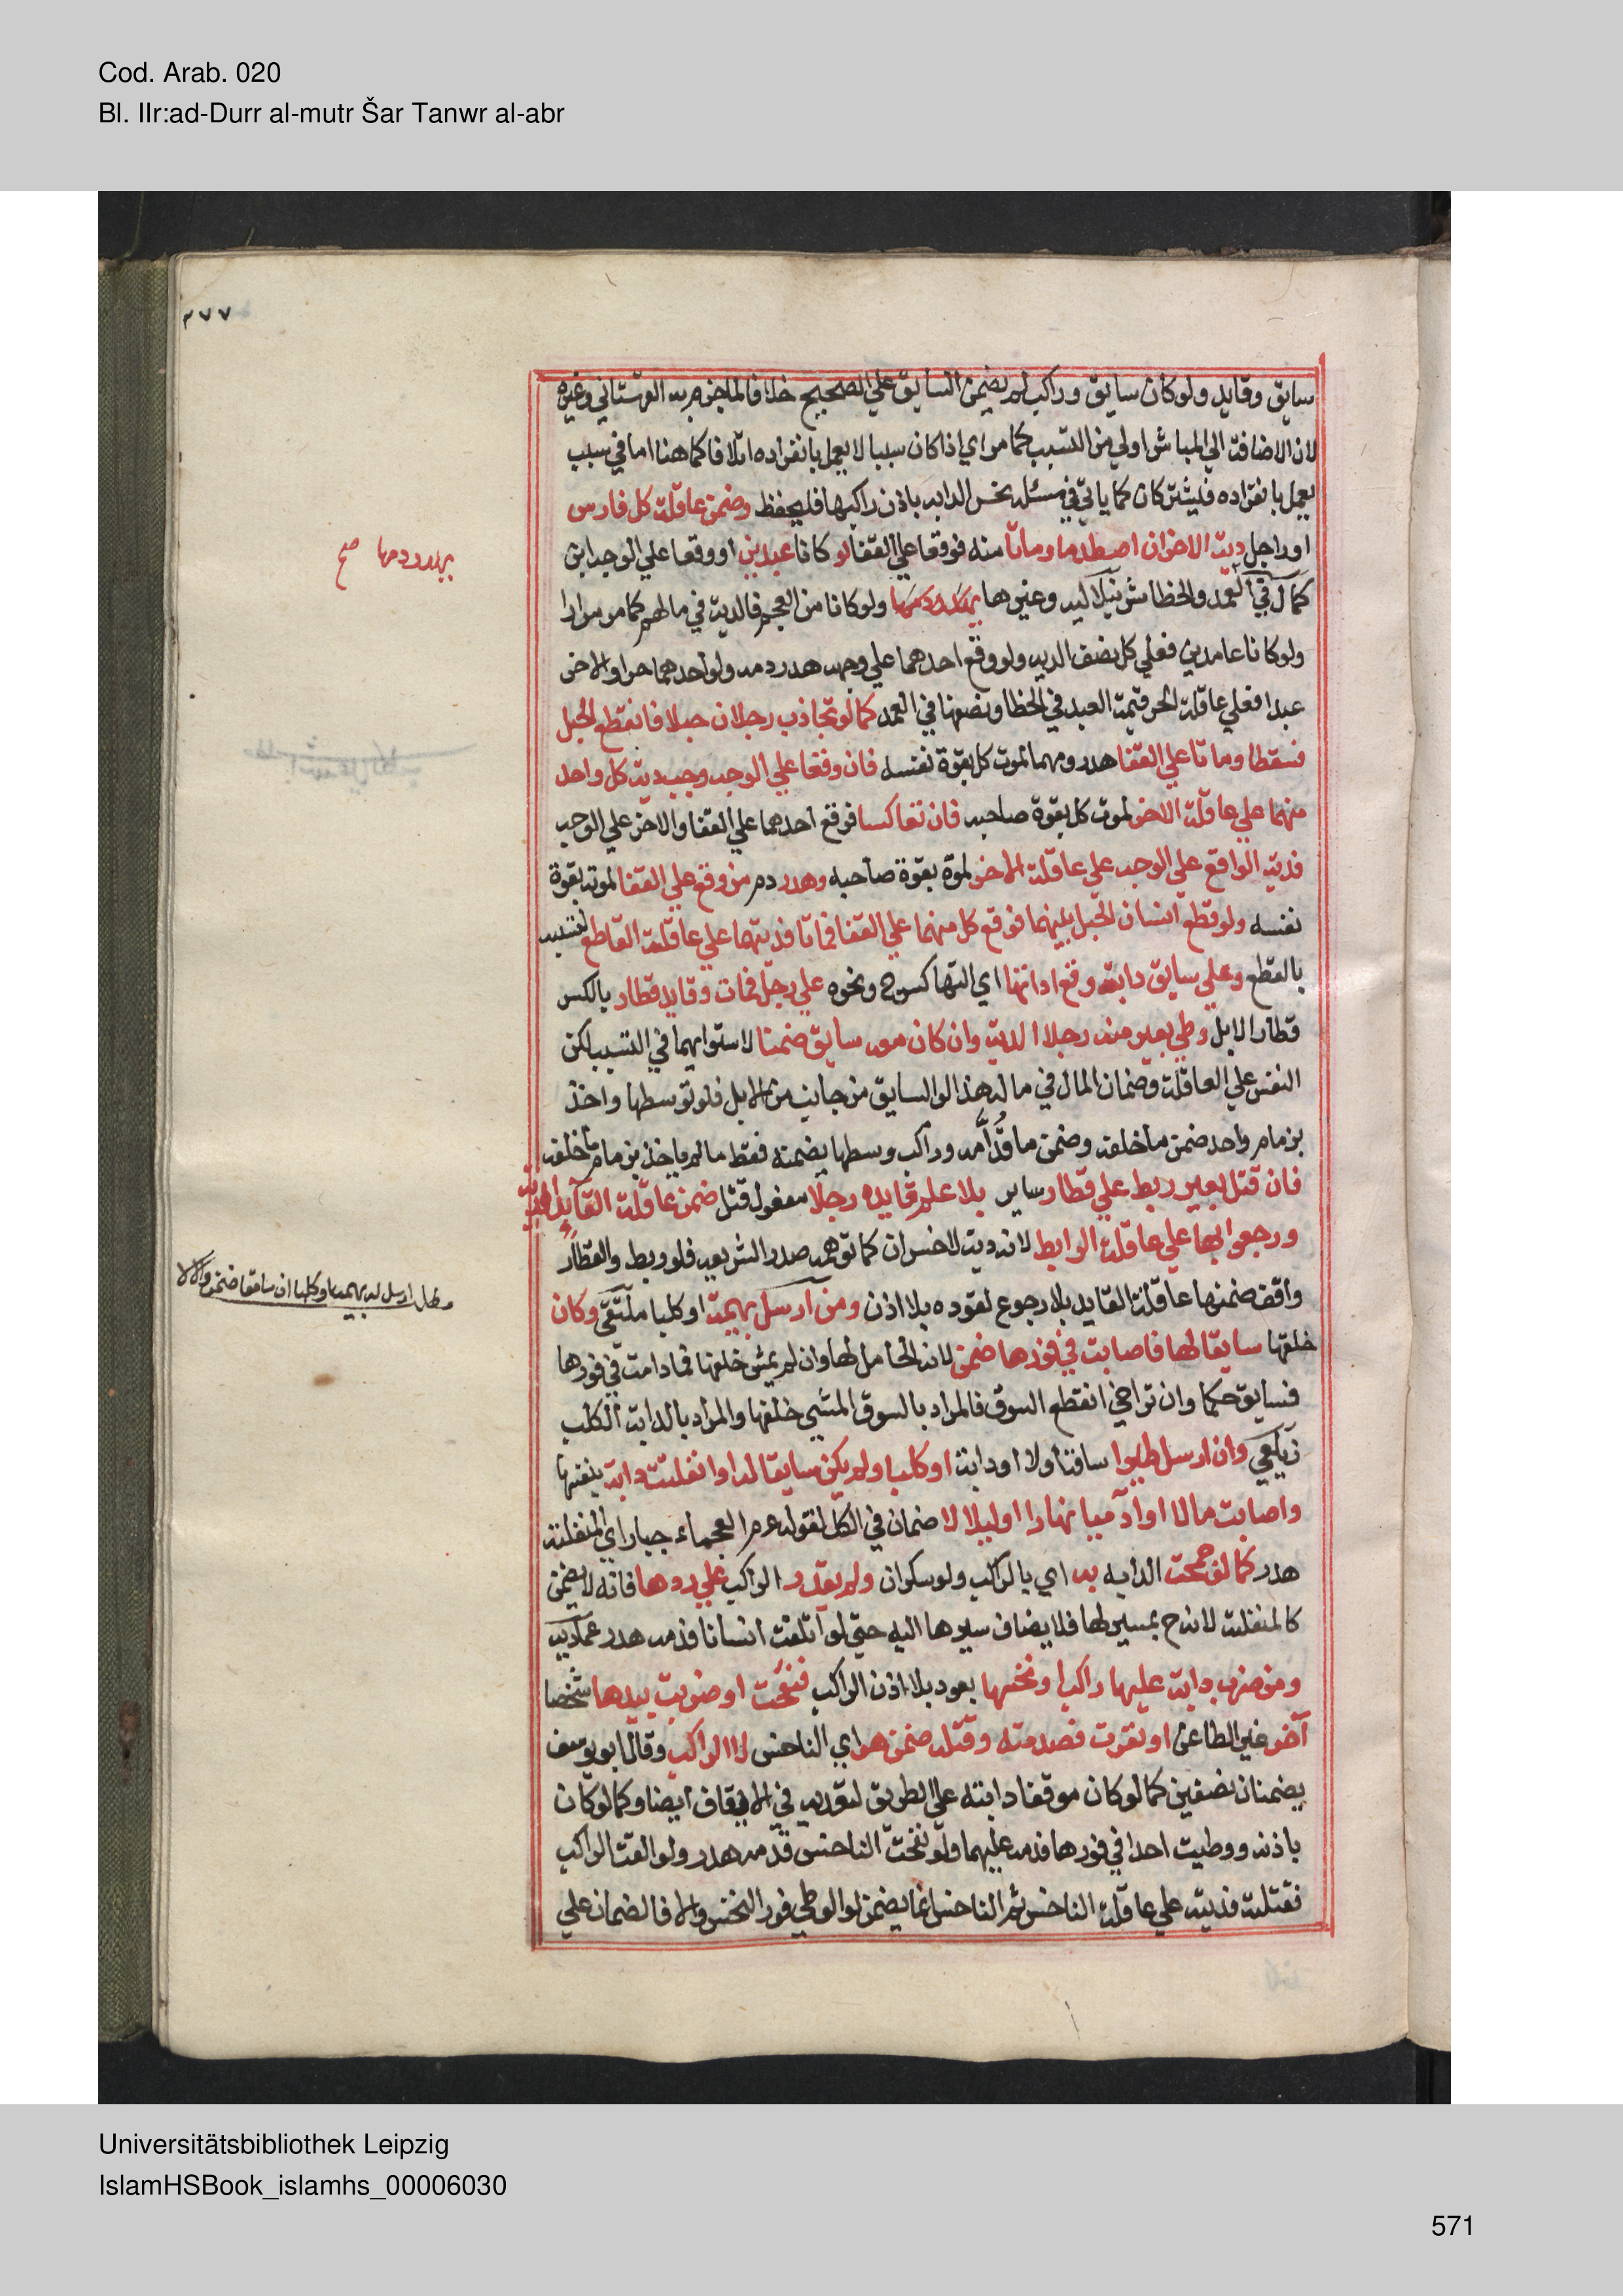 Cod. Arab. 020
Bl. IIr:ad-Durr al-mutr Šar Tanwr al-abr
٢٧٧
سايق وقايد ولو كان سايق وراكب لم يضمن السايق علي الصحيح خلافا لما جزم به القهستاني وغيره
لان الاضافة الي المباشر اولي من التسبب كما مر اي اذا كان سببا لا يعمل بانفراده اتلافا كما هنا اما في سبب
يعمل بانفراده فيشتركان كما ياتي في مسئلة نخس الدابه باذن راكبها فليحفظ وضمن عاقلة كل فارس
او راجل دية الاخر ان اصطدما وماتا منه فوقعا علي القفا لو كانا عبدين او وقعا علي الوجه ابن
كمال في العمد والخطا شرنبلاليه وغيرها يهدر دمهما ولو كانا من العجم فالدية في مالهم كما مر مرارا
يهدر دمهما صح
ولو كانا عامدين فعلي كل نصف الديه ولو وقع احدهما علي وجهه هدر دمه ولو احدهما حرا والاخر
عبدا فعلي عاقلة الحر قيمة العبد في الخطا ونصفها في العمد كما لو تجاذب رجلان حبلا فانقطع الحبل
فسقطا وماتا علي القفا هدر دمهما لموت كل بقوة نفسه فان وقعا علي الوجه وجب دية كل واحد
منهما علي عاقلة الاخر لموت كل بقوة صاحبه فان تعاكسا فوقع احدهما علي القفا والاخر علي الوجه
فدية الواقع علي الوجه علي عاقلة الاخر لموته بقوة صاحبه وهدر دم من وقع علي القفا لموته بقوة
نفسه ولو قطع انسان الحبل بينهما فوقع كل منهما علي القفا فماتا فديتهما علي عاقلة القاطع لتسببه
بالقطع وعلي سايق دابة وقع اداتها اي التها كسرج ونحوه علي رجل فمات وقايد قطار بالكسر
قطار الابل وطي بعير منه رجلا الدية وان كان معه سايق ضمنا لاستوايهما في التسبب لكن
النفس علي العاقلة وضمان المال في ماله هذا لو السايق من جانب من الابل فلو توسطها واخذ
بزمام واحد ضمن ما خلفه وضمن ما قدامه وراكب وسطها يضمنه فقط ما لم ياخذ بزمام ما خلفه
فان قتل بعير ربط علي قطار ساير بلا علم قايده رجلا مفعول قتل ضمن عاقلة القايد الدية
ورجعوا بها علي عاقلة الرابط لانه دية لا خسران كما توهمه صدر الشريعه فلو ربط والقطار
واقف ضمنها عاقلة القايد بلا رجوع لقوده بلا اذن ومن ارسل بهيمة او كلبا ملتقي وكان
مطلب ارسل له بهيمة او كلبا ان سايقا ضمن والا لا
خلفها سايقا لها فاصابت في فورها ضمن لانه الحامل لها وان لم يمش خلفها فما دامت في فورها
فسايق حكما وان تراخي انقطع السوق فالمراد بالسوق المشي خلفها والمراد بالدابة الكلب
زيلعي وان ارسل طيرا ساقه اولا او دابة او كلبا ولم يكن سايقا له او انفلتت دابة بنفسها
واصابت مالا او آدميا نهارا او ليلا لا ضمان في الكل لقوله عم العجماء جبار اي المنفلتة
هدر كما لو جمحت الدابه به اي بالراكب ولو سكران ولم يقدر الراكب علي ردها فانه لا يضمن
كالمنفلتة لانه ح بمسير لها فلا يضاف سيرها اليه حتي لو اتلفت انسانا فدمه هدر عماديه
ومن ضرب دابة عليها راكب او نخسها بعود بلا اذن الراكب فنفحت او ضربت بيدها شخصا
آخر غير الطاعن او نفرت فصدمته وقتله ضمن هو اي الناخس لا الراكب وقال ابو يوسف
يضمنان نصفين كما لو كان موقفا دابته علي الطريق لتعديه في الايقاف ايضا وكما لو كان
باذنه ووطيت احدا في فورها فدمه عليهما ولو نفحت الناخس فدمه هدر ولو القت الراكب
فقتلته فديته علي عاقلة الناخس ثم الناخس انما يضمن لو الوطي فور النخس والا فالضمان علي
Universitätsbibliothek Leipzig
IslamHSBook_islamhs_00006030
571